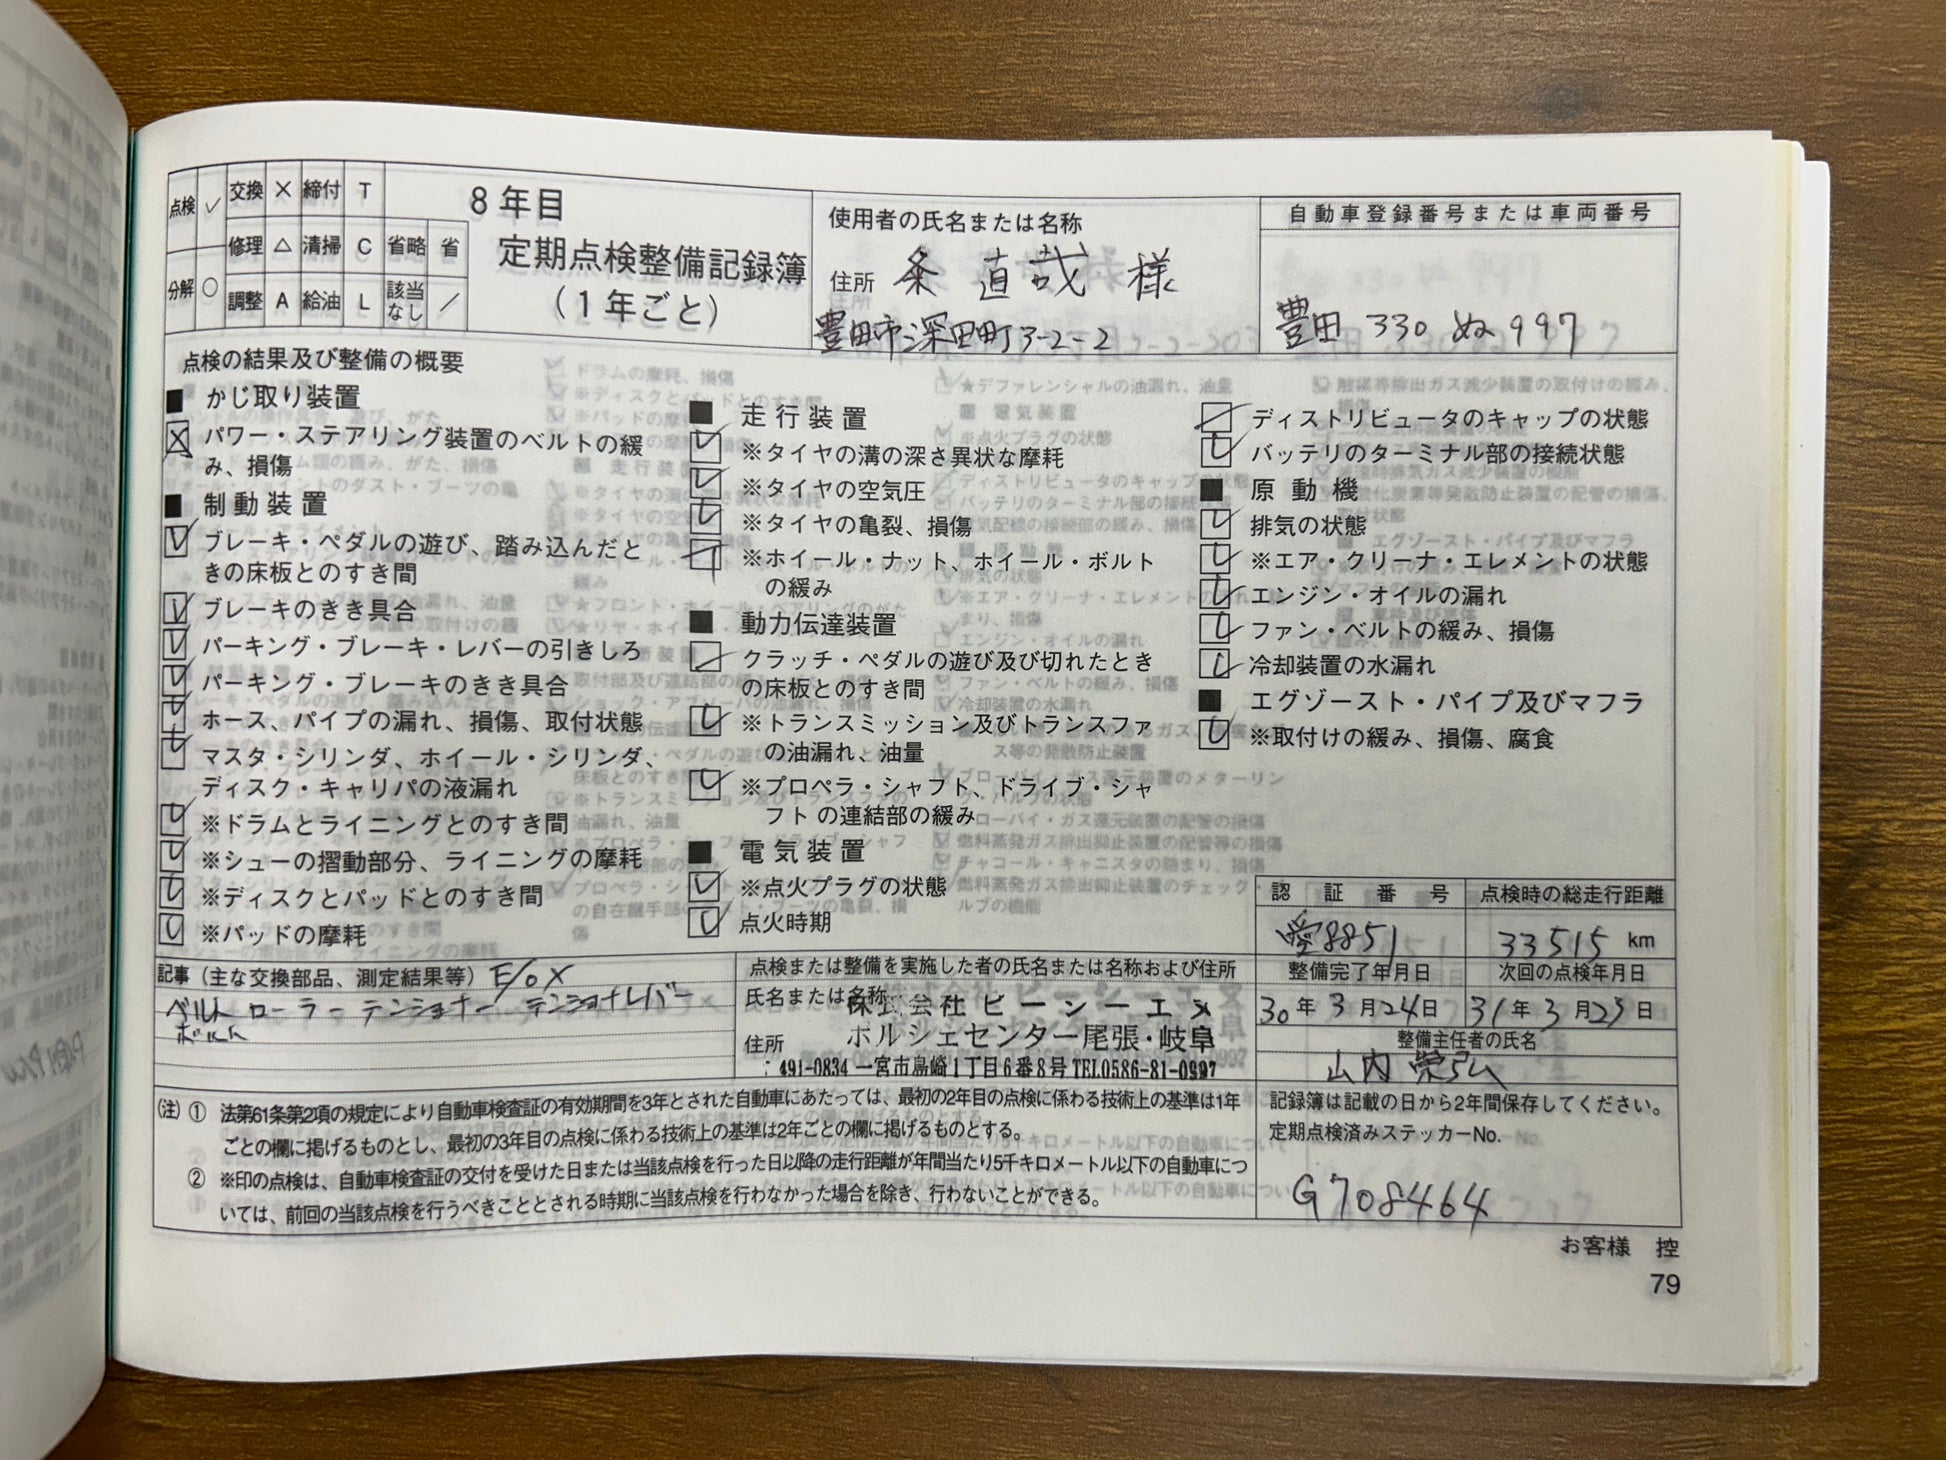 点検 ✓ 交換 × 締付 T
修理 △ 清掃 C 省略 省
分解 ○ 調整 A 給油 L 該当なし ／
8年目
定期点検整備記録簿
(1年ごと)
使用者の氏名または名称
条 直哉 様
住所
豊田市深田町3-2-2
自動車登録番号または車両番号
豊田 330 ぬ 997
点検の結果及び整備の概要
■ かじ取り装置
パワー・ステアリング装置のベルトの緩
み、損傷
■ 制動装置
ブレーキ・ペダルの遊び、踏み込んだと
きの床板とのすき間
ブレーキのきき具合
パーキング・ブレーキ・レバーの引きしろ
パーキング・ブレーキのきき具合
ホース、パイプの漏れ、損傷、取付状態
マスタ・シリンダ、ホイール・シリンダ、
ディスク・キャリパの液漏れ
※ドラムとライニングとのすき間
※シューの摺動部分、ライニングの摩耗
※ディスクとパッドとのすき間
※パッドの摩耗
■ 走行装置
※タイヤの溝の深さ異状な摩耗
※タイヤの空気圧
※タイヤの亀裂、損傷
※ホイール・ナット、ホイール・ボルト
の緩み
■ 動力伝達装置
クラッチ・ペダルの遊び及び切れたとき
の床板とのすき間
※トランスミッション及びトランスファ
の油漏れ、油量
※プロペラ・シャフト、ドライブ・シャ
フト の連結部の緩み
■ 電気装置
※点火プラグの状態
点火時期
ディストリビュータのキャップの状態
バッテリのターミナル部の接続状態
■ 原動機
排気の状態
※エア・クリーナ・エレメントの状態
エンジン・オイルの漏れ
ファン・ベルトの緩み、損傷
冷却装置の水漏れ
■ エグゾースト・パイプ及びマフラ
※取付けの緩み、損傷、腐食
認証番号
愛8851
点検時の総走行距離
33515 km
整備完了年月日
30年 3月24日
次回の点検年月日
31年 3月23日
整備主任者の氏名
山内 栄弘
記事（主な交換部品、測定結果等）E/O X
ベルト ローラー テンショナー テンショナレバー
ボルト
点検または整備を実施した者の氏名または名称および住所
氏名または名称
株式会社 ピーシーエヌ
ポルシェセンター尾張・岐阜
住所
491-0834 一宮市島崎1丁目6番8号 TEL0586-81-0997
(注) ① 法第61条第2項の規定により自動車検査証の有効期間を3年とされた自動車にあたっては、最初の2年目の点検に係わる技術上の基準は1年
ごとの欄に掲げるものとし、最初の3年目の点検に係わる技術上の基準は2年ごとの欄に掲げるものとする。
② ※印の点検は、自動車検査証の交付を受けた日または当該点検を行った日以降の走行距離が年間当たり5千キロメートル以下の自動車につ
いては、前回の当該点検を行うべきこととされる時期に当該点検を行わなかった場合を除き、行わないことができる。
記録簿は記載の日から2年間保存してください。
定期点検済みステッカーNo.
G708464
お客様 控
79